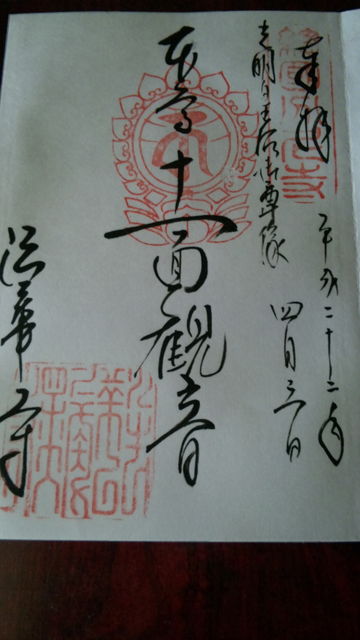 奉拝
平成二十二年
四月三日
光明皇后御尊像
本尊十一面觀音
法華寺